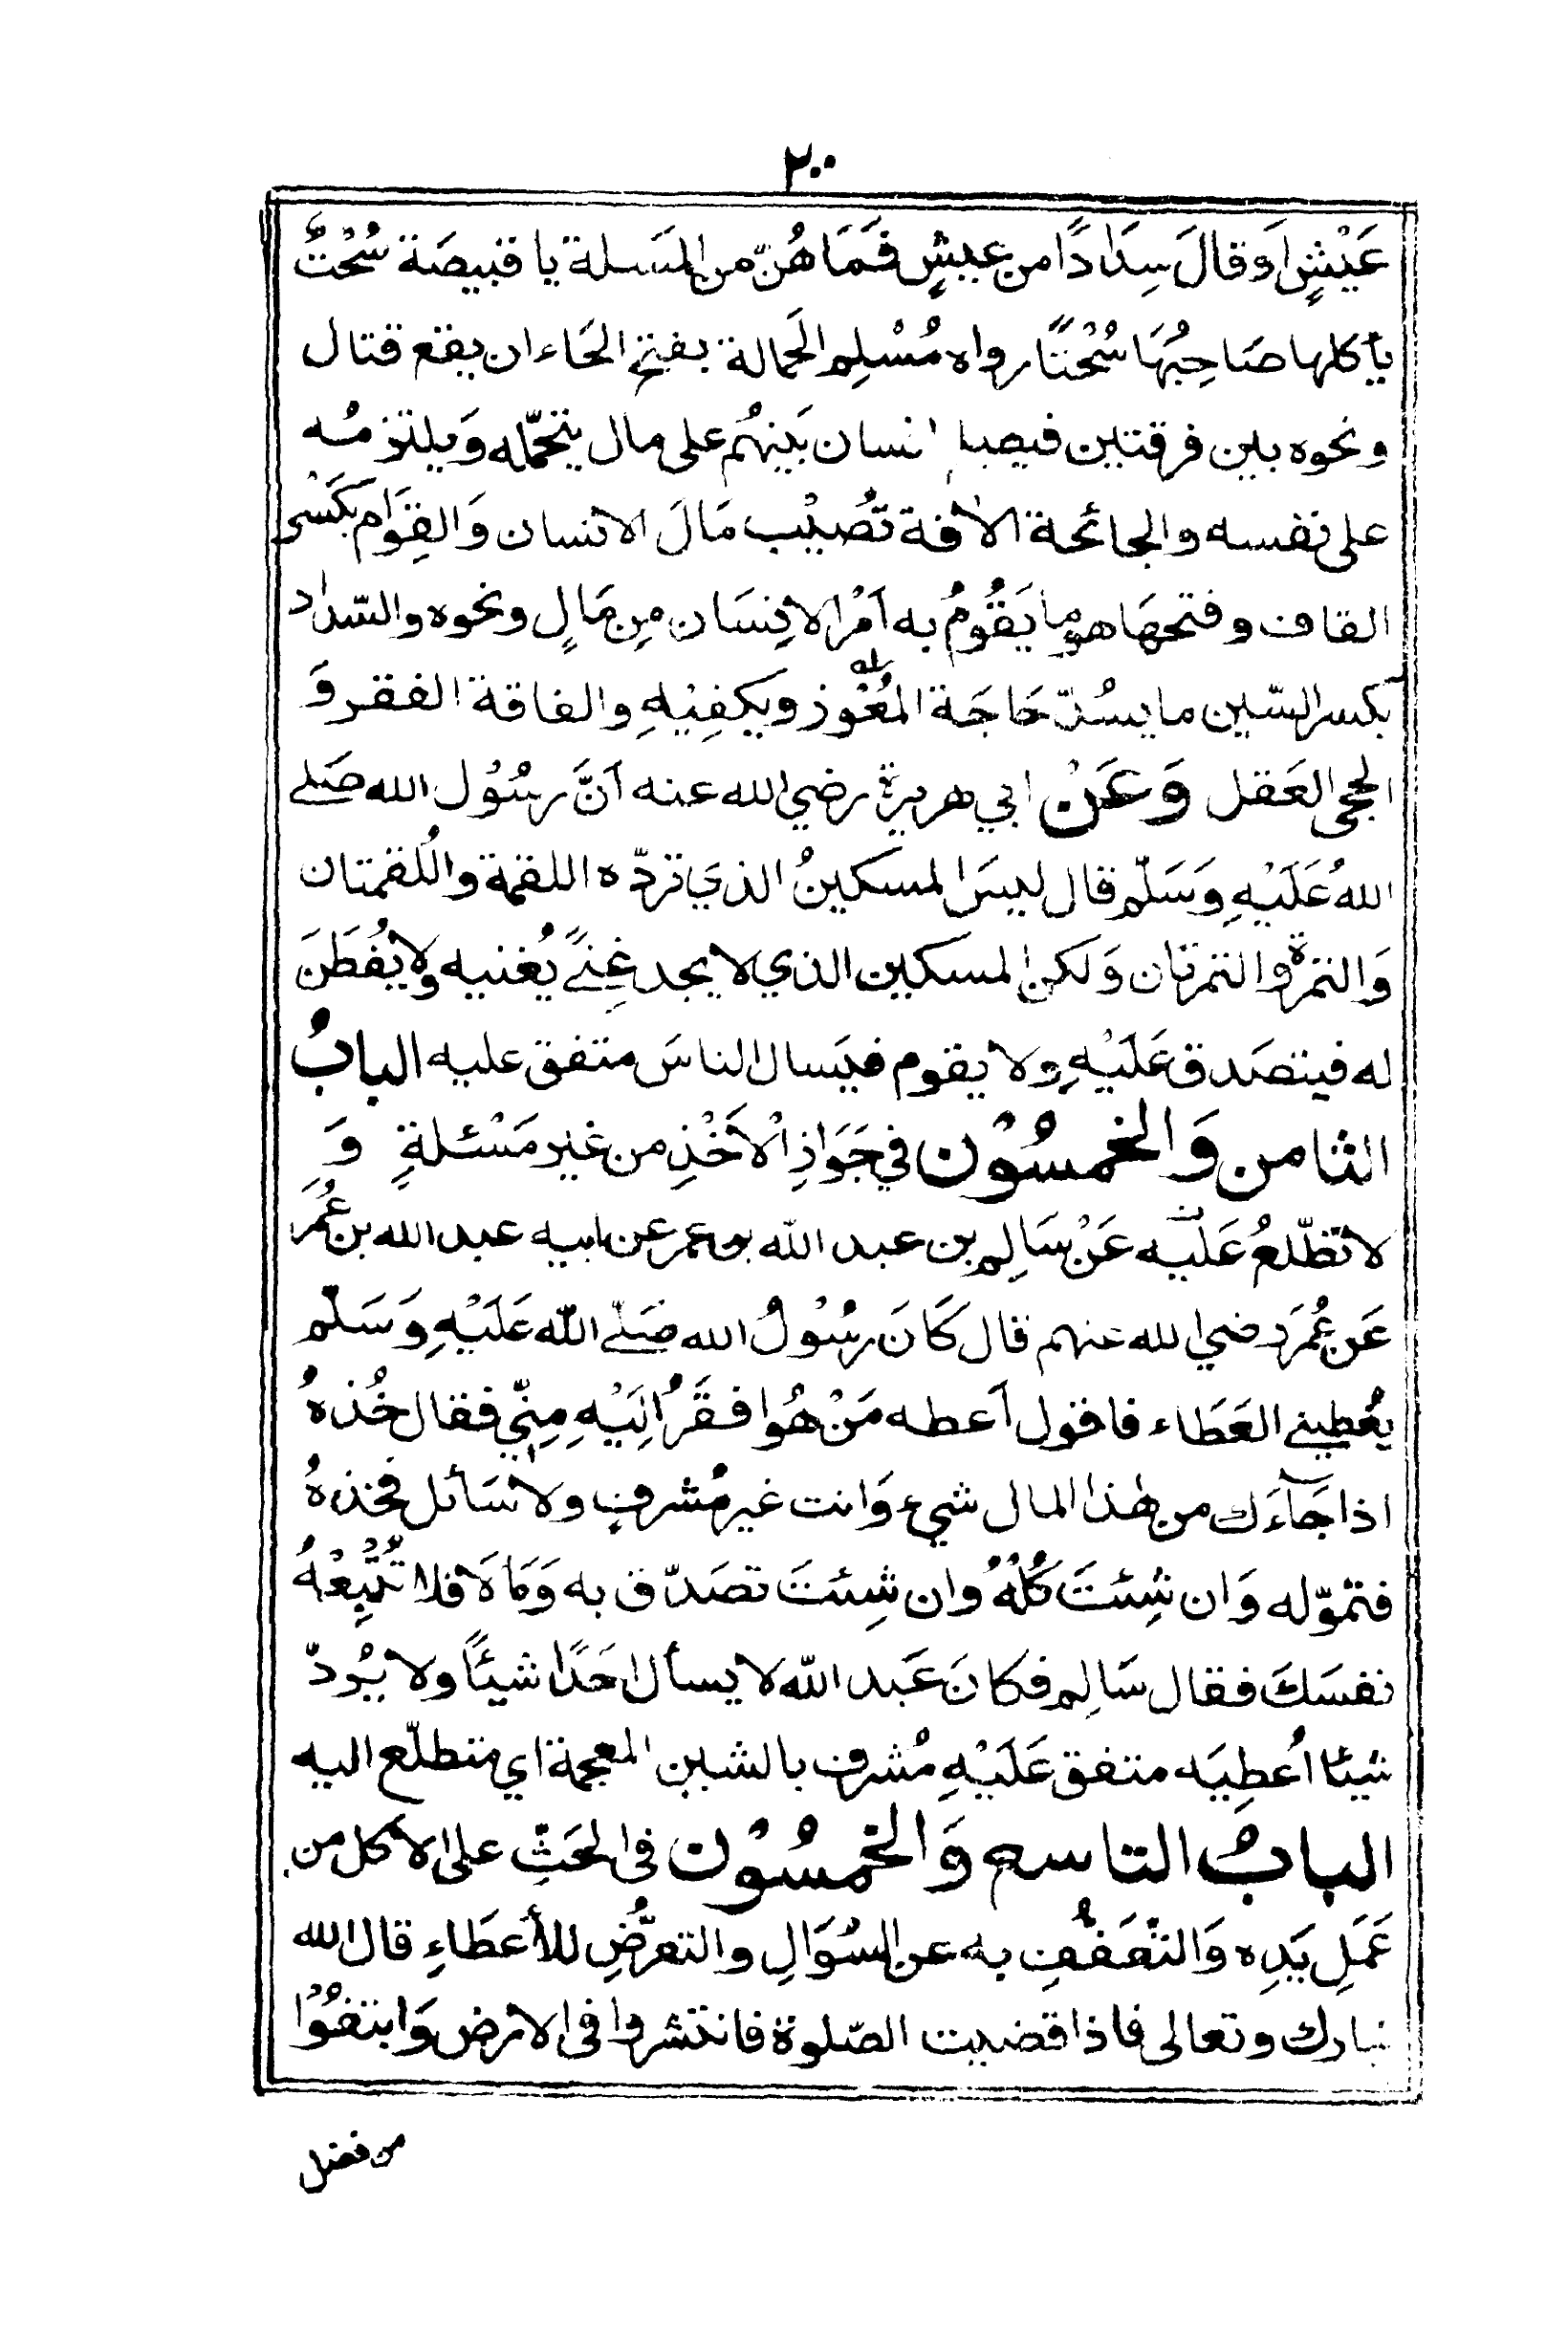 ٢٠٠
عَيْشٍ اَوقالَ سِدَادًا من عيشٍ فَمَا هُنّ من المَسَلة يا قبيصَة سُحْتٌ
يأكلها صَاحِبُهَا سُحْتًا رواه مُسْلِم الحَمالة بفتح الحَاء ان يقع قتال
ونحوه بين فرقتين فيصلح انسان بَينهُم على مال يتحمّله وَيلتزمُه
على نفسه والجائحة الآفة تُصيْب مَالَ الانسان وَالقِوَام بكَسْر
القاف وفتحهَا هو ما يَقُومُ به اَمْرُ الانِسَان مِن مَالٍ ونحوه والسّداد
بكسر السّين ما يسُدّ حَاجَة المُعْوز ويكفِيْهِ والفاقة الفقر وَ
الحجى العَقل وَعَنْ ابي هريرة رضي الله عنه اَنَّ رسُوْل الله صَلے
اللهُ عَلَيْهِ وَسَلّم قال ليسَ المسكينُ الذي تردّه اللقمة واللُقمتان
وَالتمرة والتمرتان وَلكن المسكين الذي لا يجد غِنًے يُغنيه ولا يُفطَنَ
له فيتصَدق عَلَيْهِ ولا يقوم فيَسال الناسَ متفق عليه البابُ
الثامن وَالخمسُوْن في جَوَازِ الْاَخْذِ من غير مَسْئلةٍ وَ
لا تطّلعُ عَلَيْه عَنْ سَالِم بن عبد الله بن عمر عن ابيه عبد الله بن عُمَرَ
عَن عُمَرَ رضي الله عنهم قال كَانَ رسُوْلُ الله صَلّے الله عَلَيْهِ وَسَلّم
يُعْطيني العَطَاء فاقول اَعطه مَنْ هُوا فقَرُ اِلَيْهِ مِنّي فقال خُذهُ
اذا جَآءَك من هٰذا المال شيء وَانت غير مُشرفٍ ولا سَائل فخذهُ
فتموّله وَان شِئتَ كُلْهُ وان شِئتَ تصَدّق به وَمَا لاَ فلا تُتْبِعْهُ
نفسَكَ فقال سَالِم فكانَ عَبد الله لا يسأل احَدًا شيئاً ولا يَرُدّ
شيئا اُعطِيَه متفق عَلَيْهِ مُشرف بالشين المعجمة اي متطلّع اليه
البابُ التاسع وَالخمسُوْن فى الحَثِّ على الاكل من
عَمَلِ يَدِه وَالتعَفُّفِ به عن السُوَالِ والتعرُّضِ للأعطَاءِ قال الله
تبارك وتعالى فاذا قضيت الصّلوة فانتشروا فى الارض وَابتغُوْا
من فضل